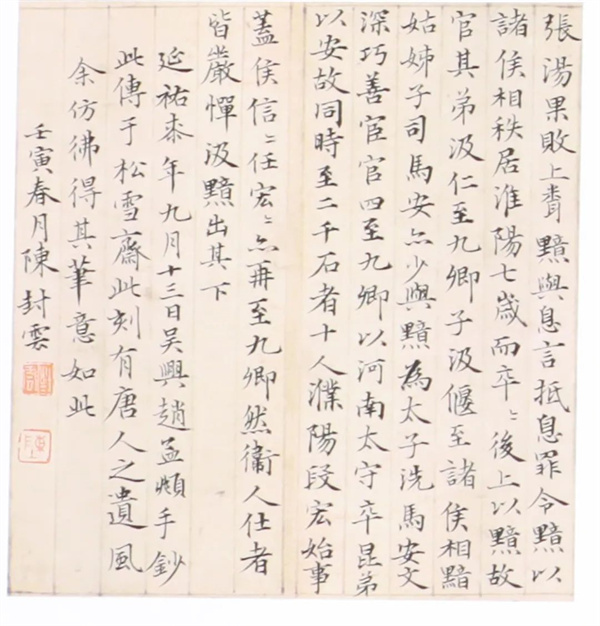 張湯果敗上聞黯與息言抵息罪令黯以
諸侯相秩居淮陽七歲而卒〻後上以黯故
官其弟汲仁至九卿子汲偃至諸侯相黯
姑姊子司馬安亦少與黯為太子洗馬安文
深巧善宦官四至九卿以河南太守卒昆弟
以安故同時至二千石者十人濮陽段宏始事
蓋侯信〻任宏〻亦再至九卿然衛人仕者
皆嚴憚汲黯出其下
延祐柒年九月十三日吳興趙孟頫手鈔
此傳于松雪齋此刻有唐人之遺風
余仿彿得其筆意如此
壬寅春月陳封雲